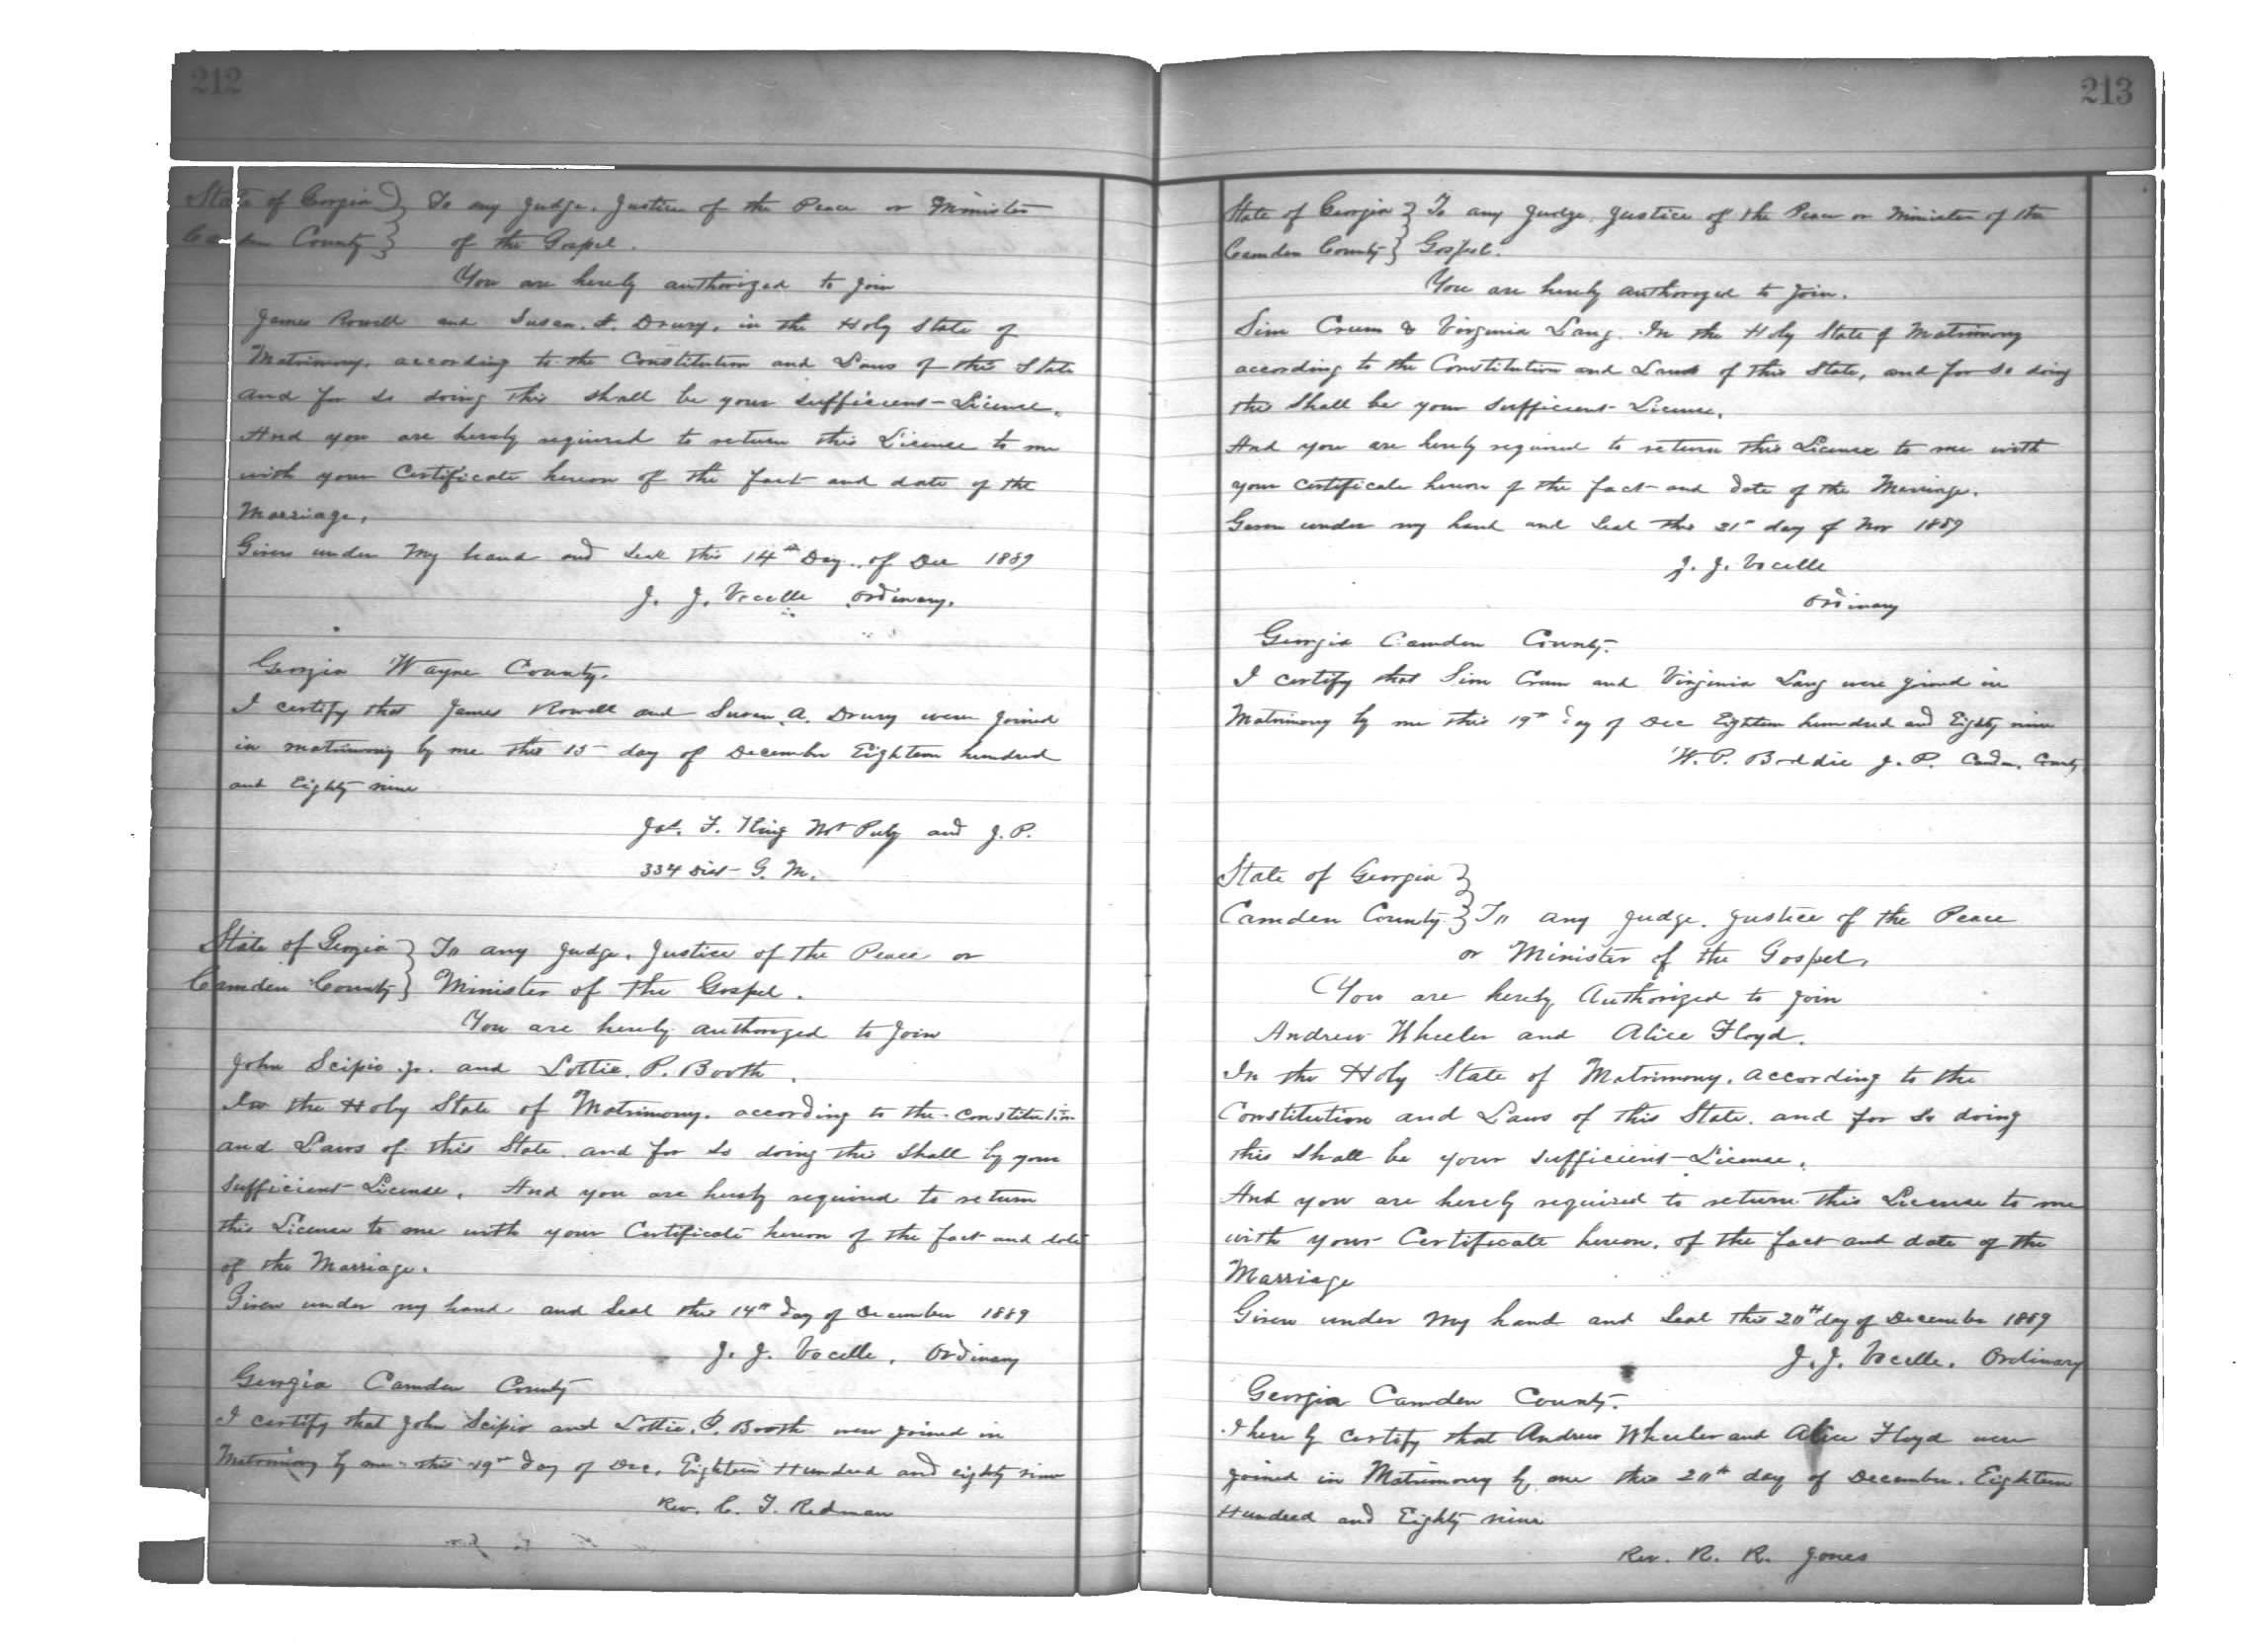 212
State of Georgia } To any Judge, Justice of the Peace or Minister
Camden County } of the Gospel.
You are hereby authorized to join
James Rowell and Susan. A. Drury, in the Holy State of
Matrimony, according to the Constitution and Laws of this State
and for so doing this shall be your sufficient License.
And you are hereby required to return this License to me
with your Certificate hereon of the fact and date of the
Marriage,
Given under my hand and Seal this 14th Day of Dec 1889
J. J. Vocelle Ordinary.
Georgia Wayne County.
I certify that James Rowell and Susan. A. Drury were joined
in matrimony by me this 15 day of December Eighteen hundred
and Eighty nine
Jas. F. King Not Pub and J. P.
334 Dist G. M.
State of Georgia } To any Judge, Justice of the Peace or
Camden County } Minister of the Gospel.
You are hereby authorized to Join
John Scipio Jr. and Lottie. P. Booth.
In the Holy State of Matrimony, according to the constitution
and Laws of this State and for so doing this shall by your
sufficient License. And you are hereby required to return
this License to me with your Certificate hereon of the fact and date
of the Marriage.
Given under my hand and Seal this 14th day of December 1889
J. J. Vocelle, Ordinary
Georgia Camden County
I certify that John Scipio and Lottie. P. Booth were joined in
Matrimony by me this 19th day of Dec. Eighteen Hundred and eighty nine
Rev. C. T. Redman
213
State of Georgia } To any Judge, Justice of the Peace or Minister of the
Camden County } Gospel.
You are hereby authorized to Join.
Sim Crum & Virginia Lang. In the Holy State of Matrimony
according to the Constitution and Laws of this State, and for so doing
this shall be your sufficient License.
And you are hereby required to return this License to me with
your certificate hereon of the fact and date of the Marriage.
Given under my hand and Seal this 21st day of Nov 1889
J. J. Vocelle
Ordinary
Georgia Camden County.
I certify that Sim Crum and Virginia Lang were joined in
Matrimony by me this 19th day of Dec Eighteen hundred and Eighty nine
W. P. Boddie J. P. Camden County
State of Georgia }
Camden County } To any Judge. Justice of the Peace
or Minister of the Gospel,
You are hereby Authorized to join
Andrew Wheeler and Alice Floyd.
In the Holy State of Matrimony, according to the
Constitution and Laws of this State, and for so doing
this shall be your sufficient License.
And you are hereby required to return this License to me
with your Certificate hereon, of the fact and date of the
Marriage
Given under my hand and Seal this 20th day of December 1889
J. J. Vocelle. Ordinary
Georgia Camden County.
I hereby certify that Andrew Wheeler and Alice Floyd were
joined in Matrimony by me this 20th day of December. Eighteen
Hundred and Eighty nine
Rev. R. R. Jones